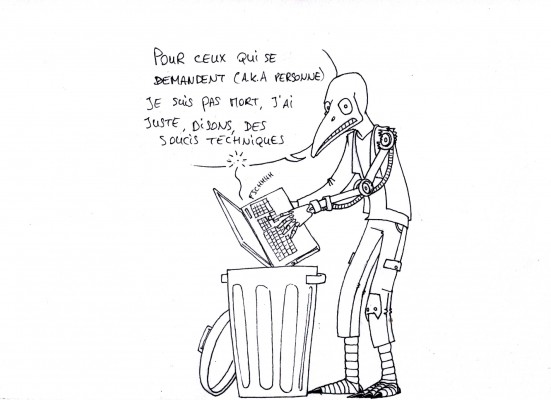 POUR CEUX QUI SE
DEMANDENT (A.K.A PERSONNE)
JE SUIS PAS MORT, J'AI
JUSTE, DISONS, DES
SOUCIS TECHNIQUES
FSCHHHH